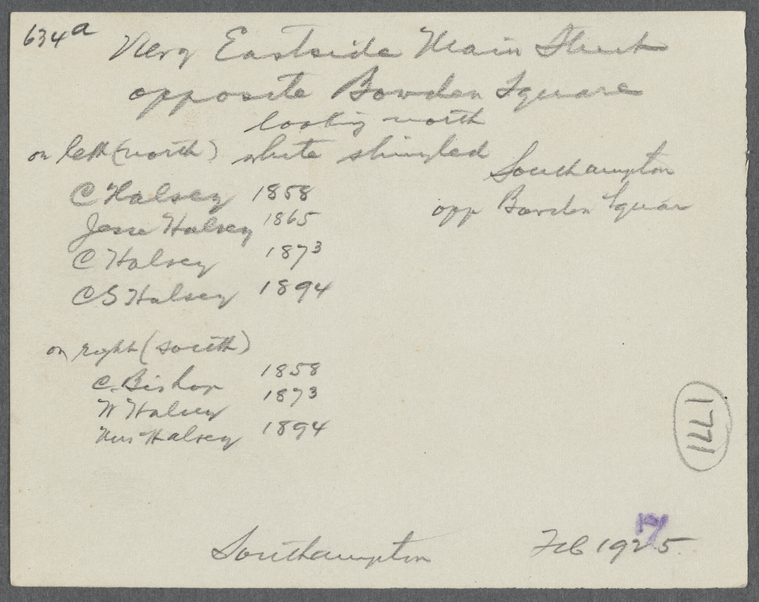 634a
View Eastside Main Street
opposite Bowden Square
looking north
on left (north) white shingled
Southampton
opp Bowden Square
C Halsey 1858
Jesse Halsey 1865
C Halsey 1873
C S Halsey 1894
on right (south)
C. Bishop 1858
W Halsey 1873
Mrs Halsey 1894
1771
7
Southampton Feb 1925